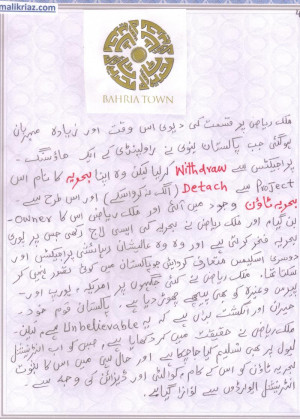 malikriaz.com
BAHRIA TOWN
ملک ریاض پر قسمت کی دیوی اس وقت اور زیادہ مہربان
ہوگئی جب پاکستان نیوی نے راولپنڈی کے ایک ہاؤسنگ -
پراجیکٹس سے Withdraw کرلیا لیکن وہ اپنا بحریہ کا نام اس
Project سے Detach (الگ نہ کرواسکے) اور اس طرح سے -
بحریہ ٹاؤن وجود میں آگئی اور ملک ریاض اس کا Owner -
بن گیا اور ملک ریاض نے بحریہ کی ایسی لاج رکھی جس پر پوری
بحریہ فخر کرتی ہے اور وہ وہ عالیشان رہائشی پراجیکٹس اور
دوسری اسکیمیں متعارف کروائیں جو پاکستان میں کوئی تصور بھی کر
سکتا تھا۔ ملک ریاض نے کئی جگہوں پر امریکہ، یورپ اور -
وغیرہ کو بھی پیچھے چھوڑ دیا ہے۔ پاکستانی قوم خود -
حیران اور انگشت بدنداں ہے کہ یہ Unbelievable ہے، لیکن -
ملک ریاض نے حقیقت میں کر دکھایا ہے، جس کو اب انٹرنیشنل
لیول پر بھی تسلیم کیا جاچکا ہے اور حال ہی میں اس کا ثبوت
بحریہ ٹاؤن کو اس کے کام، کوالٹی اور ڈیزائن کی وجہ سے -
انٹرنیشنل ایوارڈوں سے نوازا گیا ہے۔